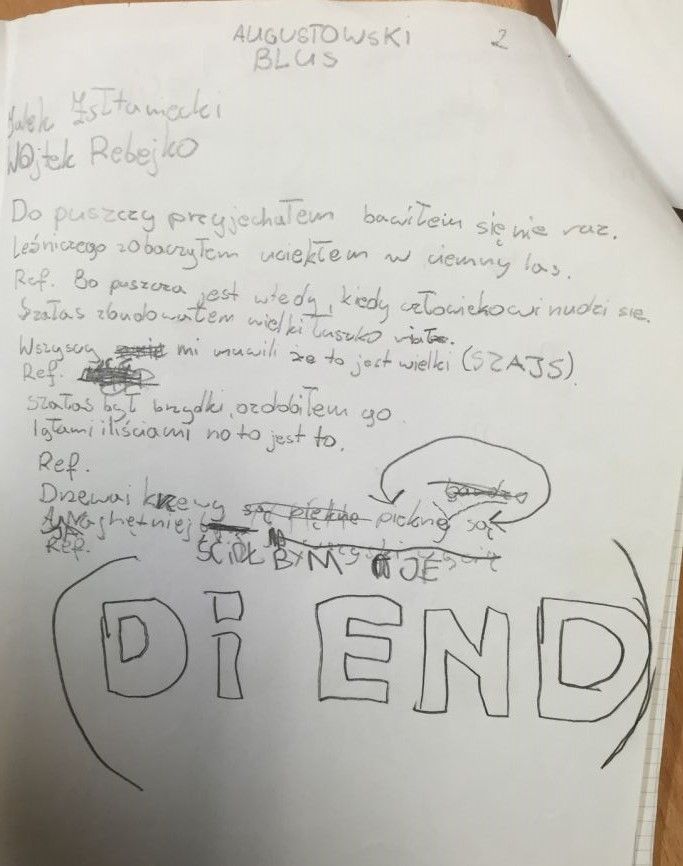 AUGUSTOWSKI 2
BLUS
Wojtek Rebejko
Do puszczy przyjechałem bawiłem się nie raz.
Leśniczego zobaczyłem uciekłem w ciemny las.
Ref. Bo puszcza jest wtedy, kiedy człowiekowi nudzi się.
Szałas zbudowałem wielki
Wszyscy mi muwili że to jest wielki (SZAJS).
Ref.
Szałas był brzydki, ozdobiłem go
Igłami i liściami no to jest to.
Ref.
Drzewa i krzewy są piękne piękne są
Najchętniej
Ref. ŚCIĄŁ BYM JE
(Di END)